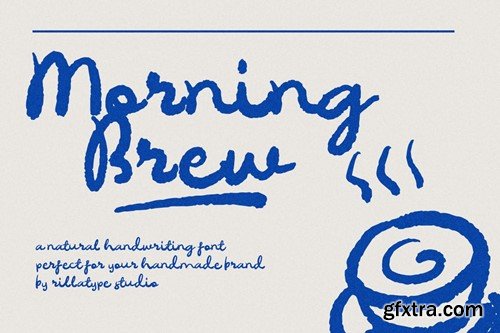 Morning
Brew
a natural handwriting font
perfect for your handmade brand
by rillatype studio
gfxtra.com